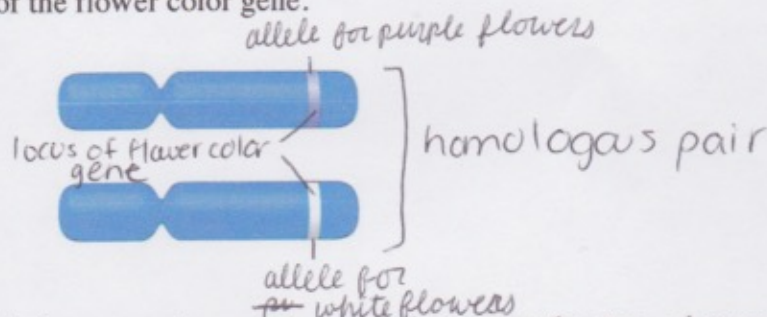 of the flower color gene.
allele for purple flowers
locus of flower color
gene
homologous pair
allele for
pu white flowers